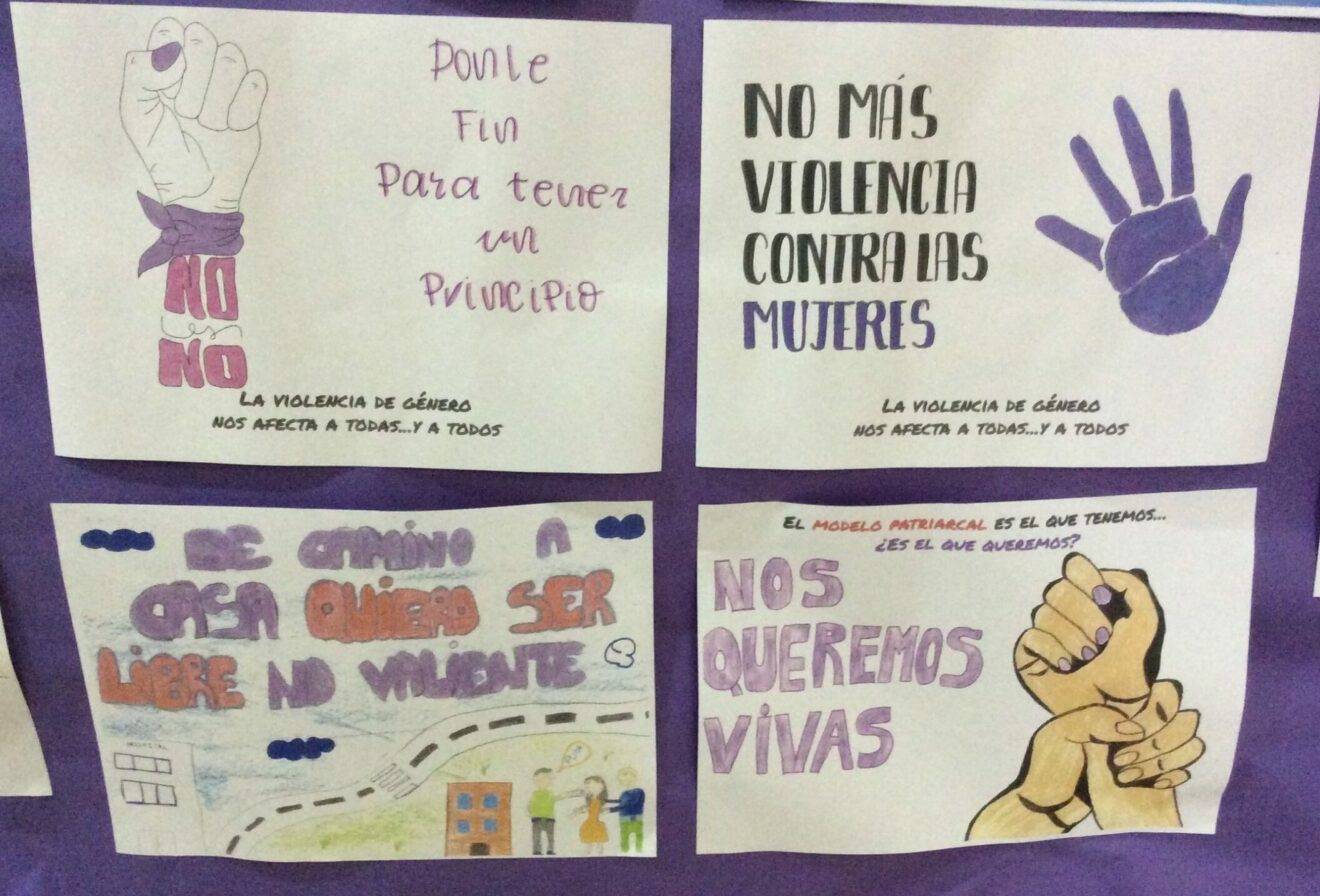 Ponle
Fin
Para tener
un
Principio
NO
es
NO
LA VIOLENCIA DE GÉNERO
NOS AFECTA A TODAS...Y A TODOS
NO MÁS
VIOLENCIA
CONTRA LAS
MUJERES
LA VIOLENCIA DE GÉNERO
NOS AFECTA A TODAS...Y A TODOS
DE CAMINO A
CASA QUIERO SER
LIBRE NO VALIENTE
HOSPITAL
EL MODELO PATRIARCAL ES EL QUE TENEMOS...
¿ES EL QUE QUEREMOS?
NOS
QUEREMOS
VIVAS